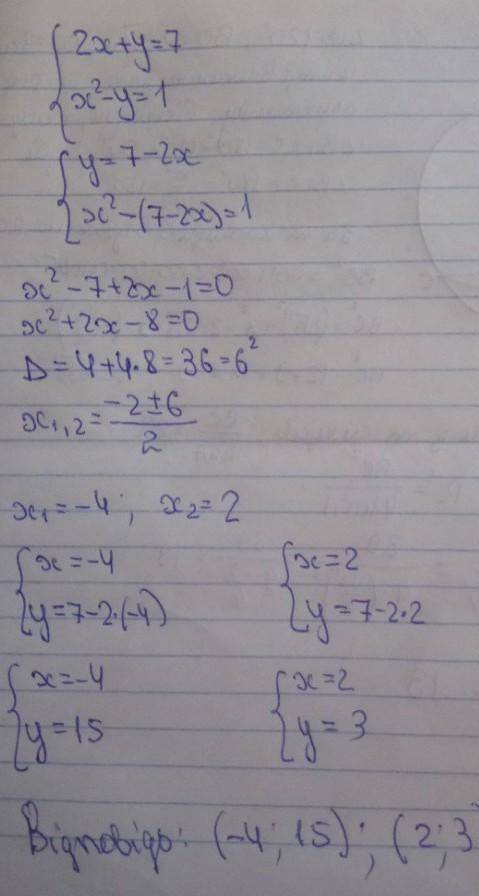 { 2x+y=7
x²-y=1
{ y=7-2x
x²-(7-2x)=1
x²-7+2x-1=0
x²+2x-8=0
D=4+4·8=36=6²
x₁,₂=(-2±6)/2
x₁=-4; x₂=2
{ x=-4 { x=2
y=7-2·(-4) y=7-2·2
{ x=-4 { x=2
y=15 y=3
Відповідь: (-4; 15); (2; 3